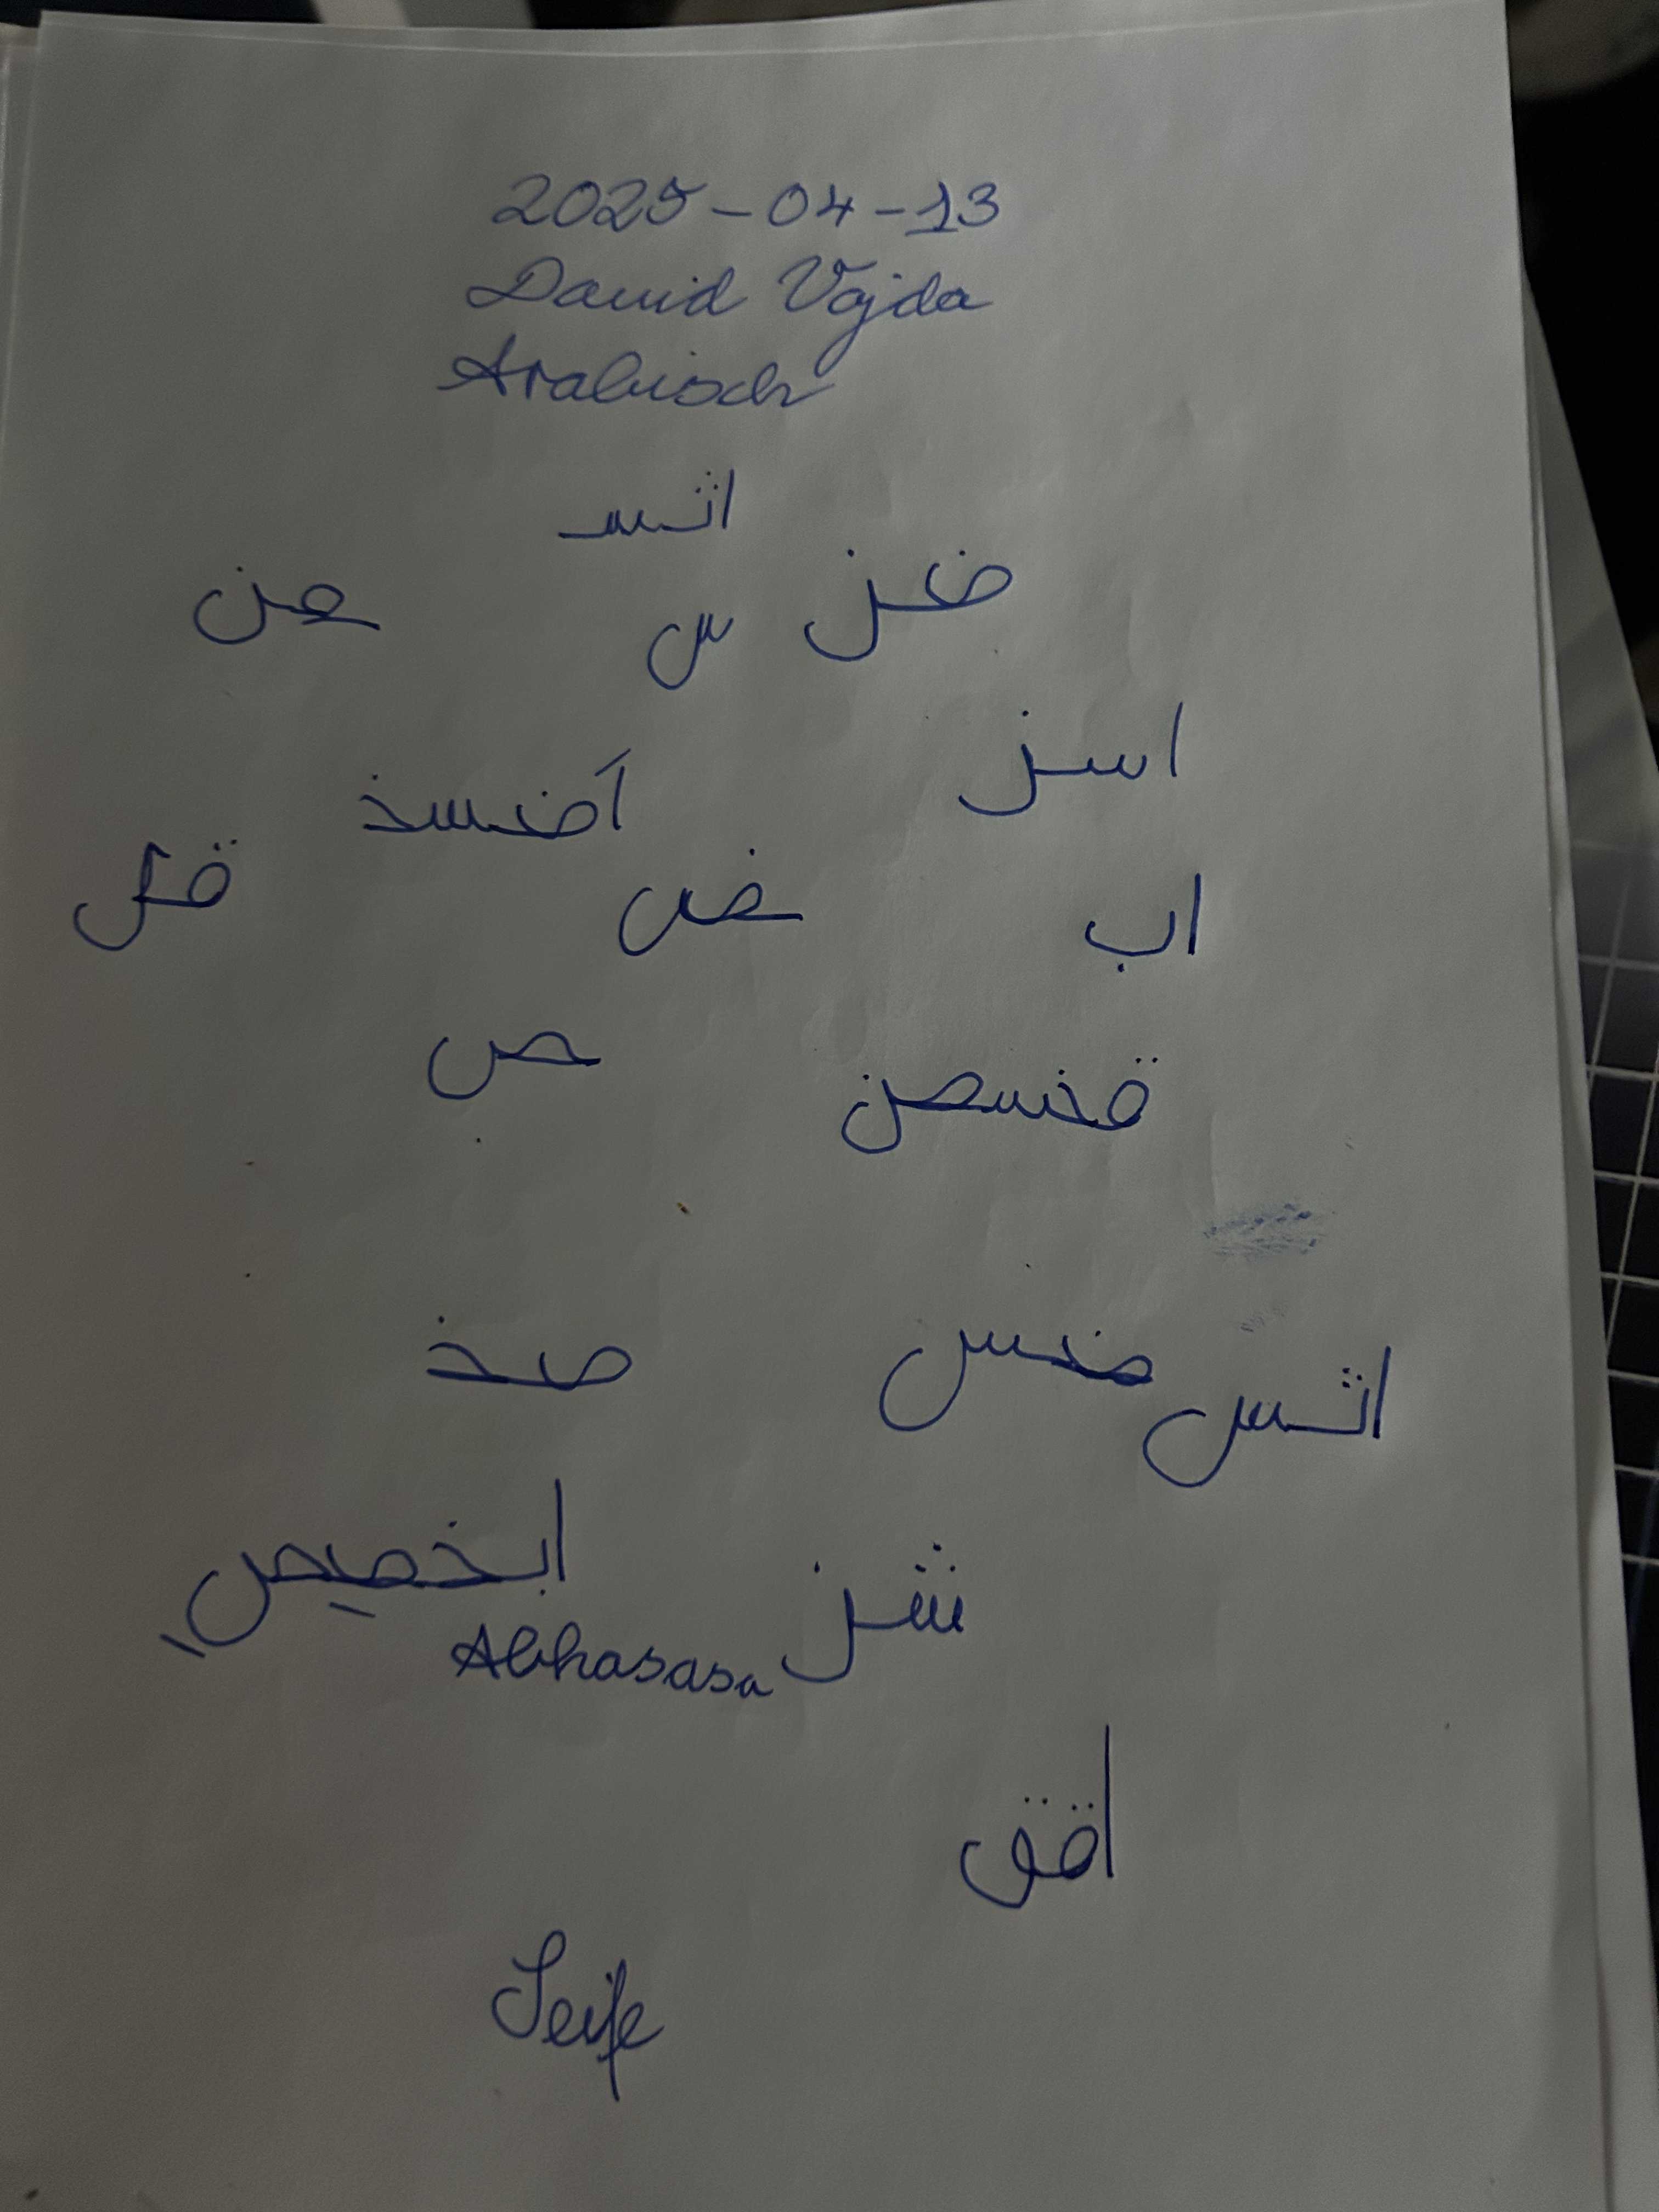 2025-04-13
David Vojda
Arabisch
اثسـ
ضز س عن
اسز
أضسذ
اب ض قل
قخسصن ص
اثس ضس صذ
شز ابخصص
Abhasasa
اقق
Seife